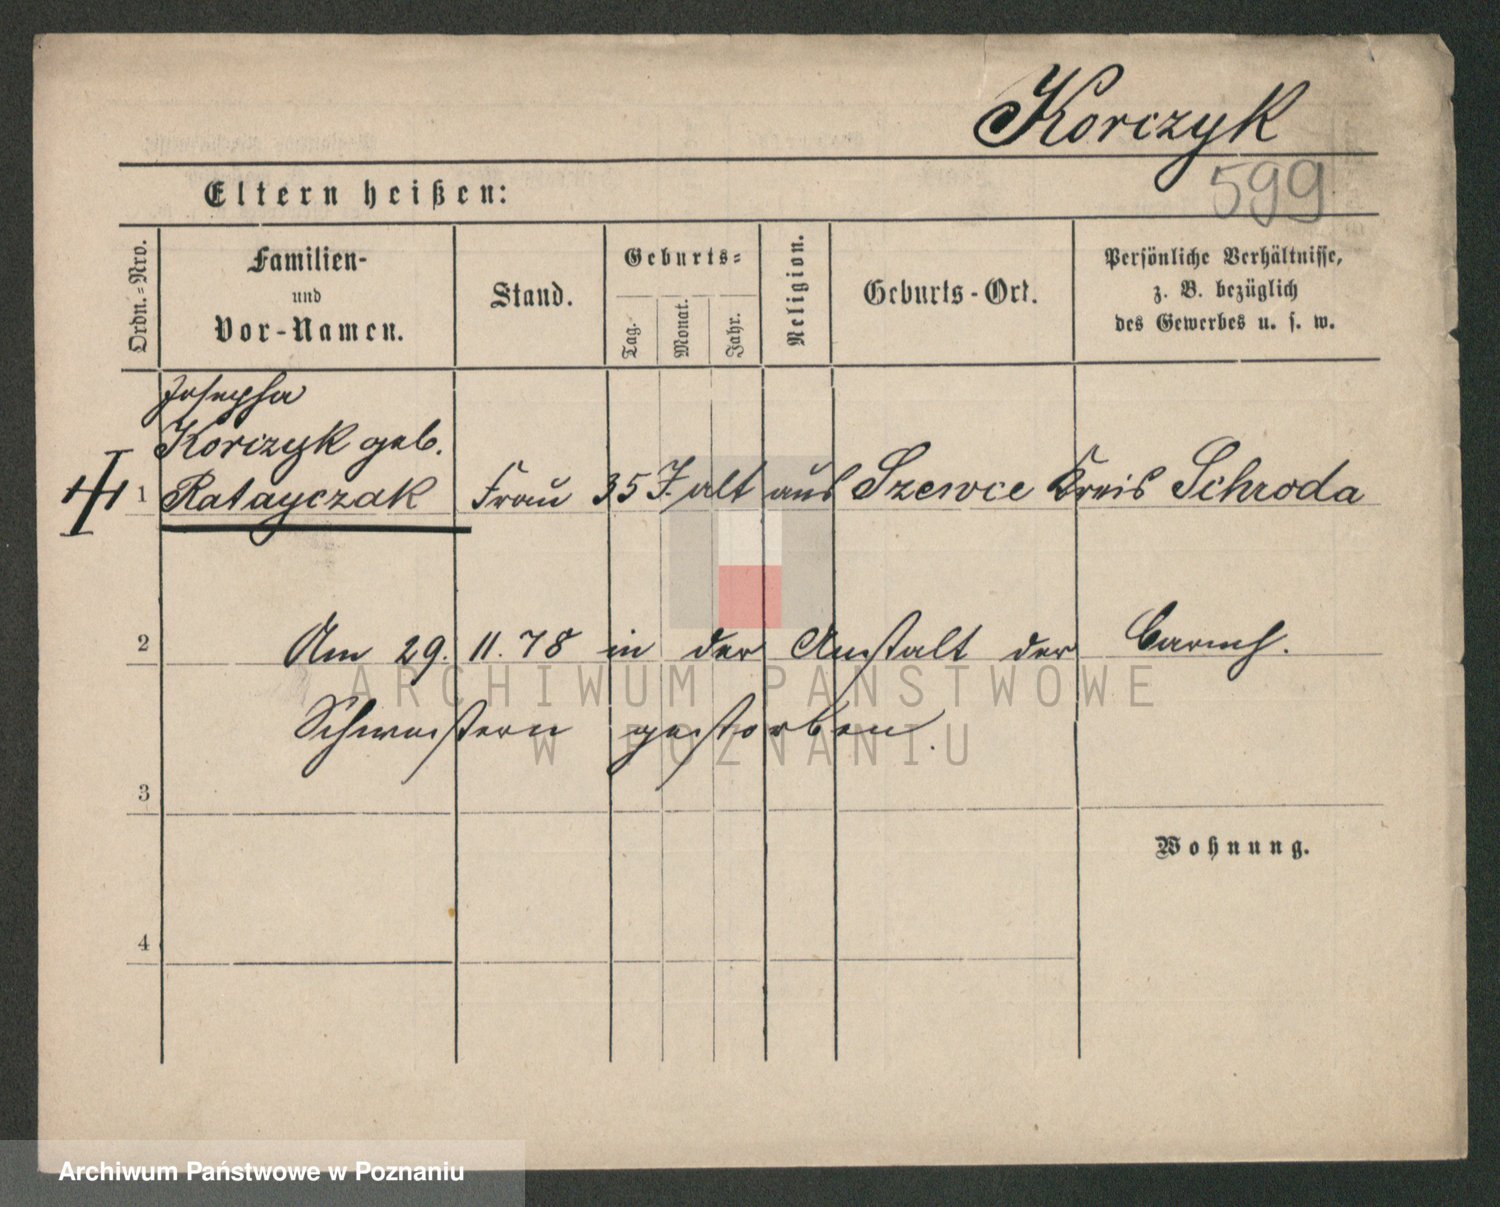 Korczyk
599
Eltern heißen:
Ordn.-Nro.
Familien-
und
Vor-Namen.
Stand.
Geburts-
Tag.
Monat.
Jahr.
Religion.
Geburts-Ort.
Persönliche Verhältnisse,
z. B. bezüglich
des Gewerbes u. s. w.
Josepha
Korczyk geb.
1 Ratayczak Frau 35 J. alt aus Szewce Kreis Schroda
2 Am 29. 11. 78 in der Anstalt der barmh.
Schwestern gestorben.
3
Wohnung.
4
ARCHIWUM PAŃSTWOWE
W POZNANIU
Archiwum Państwowe w Poznaniu